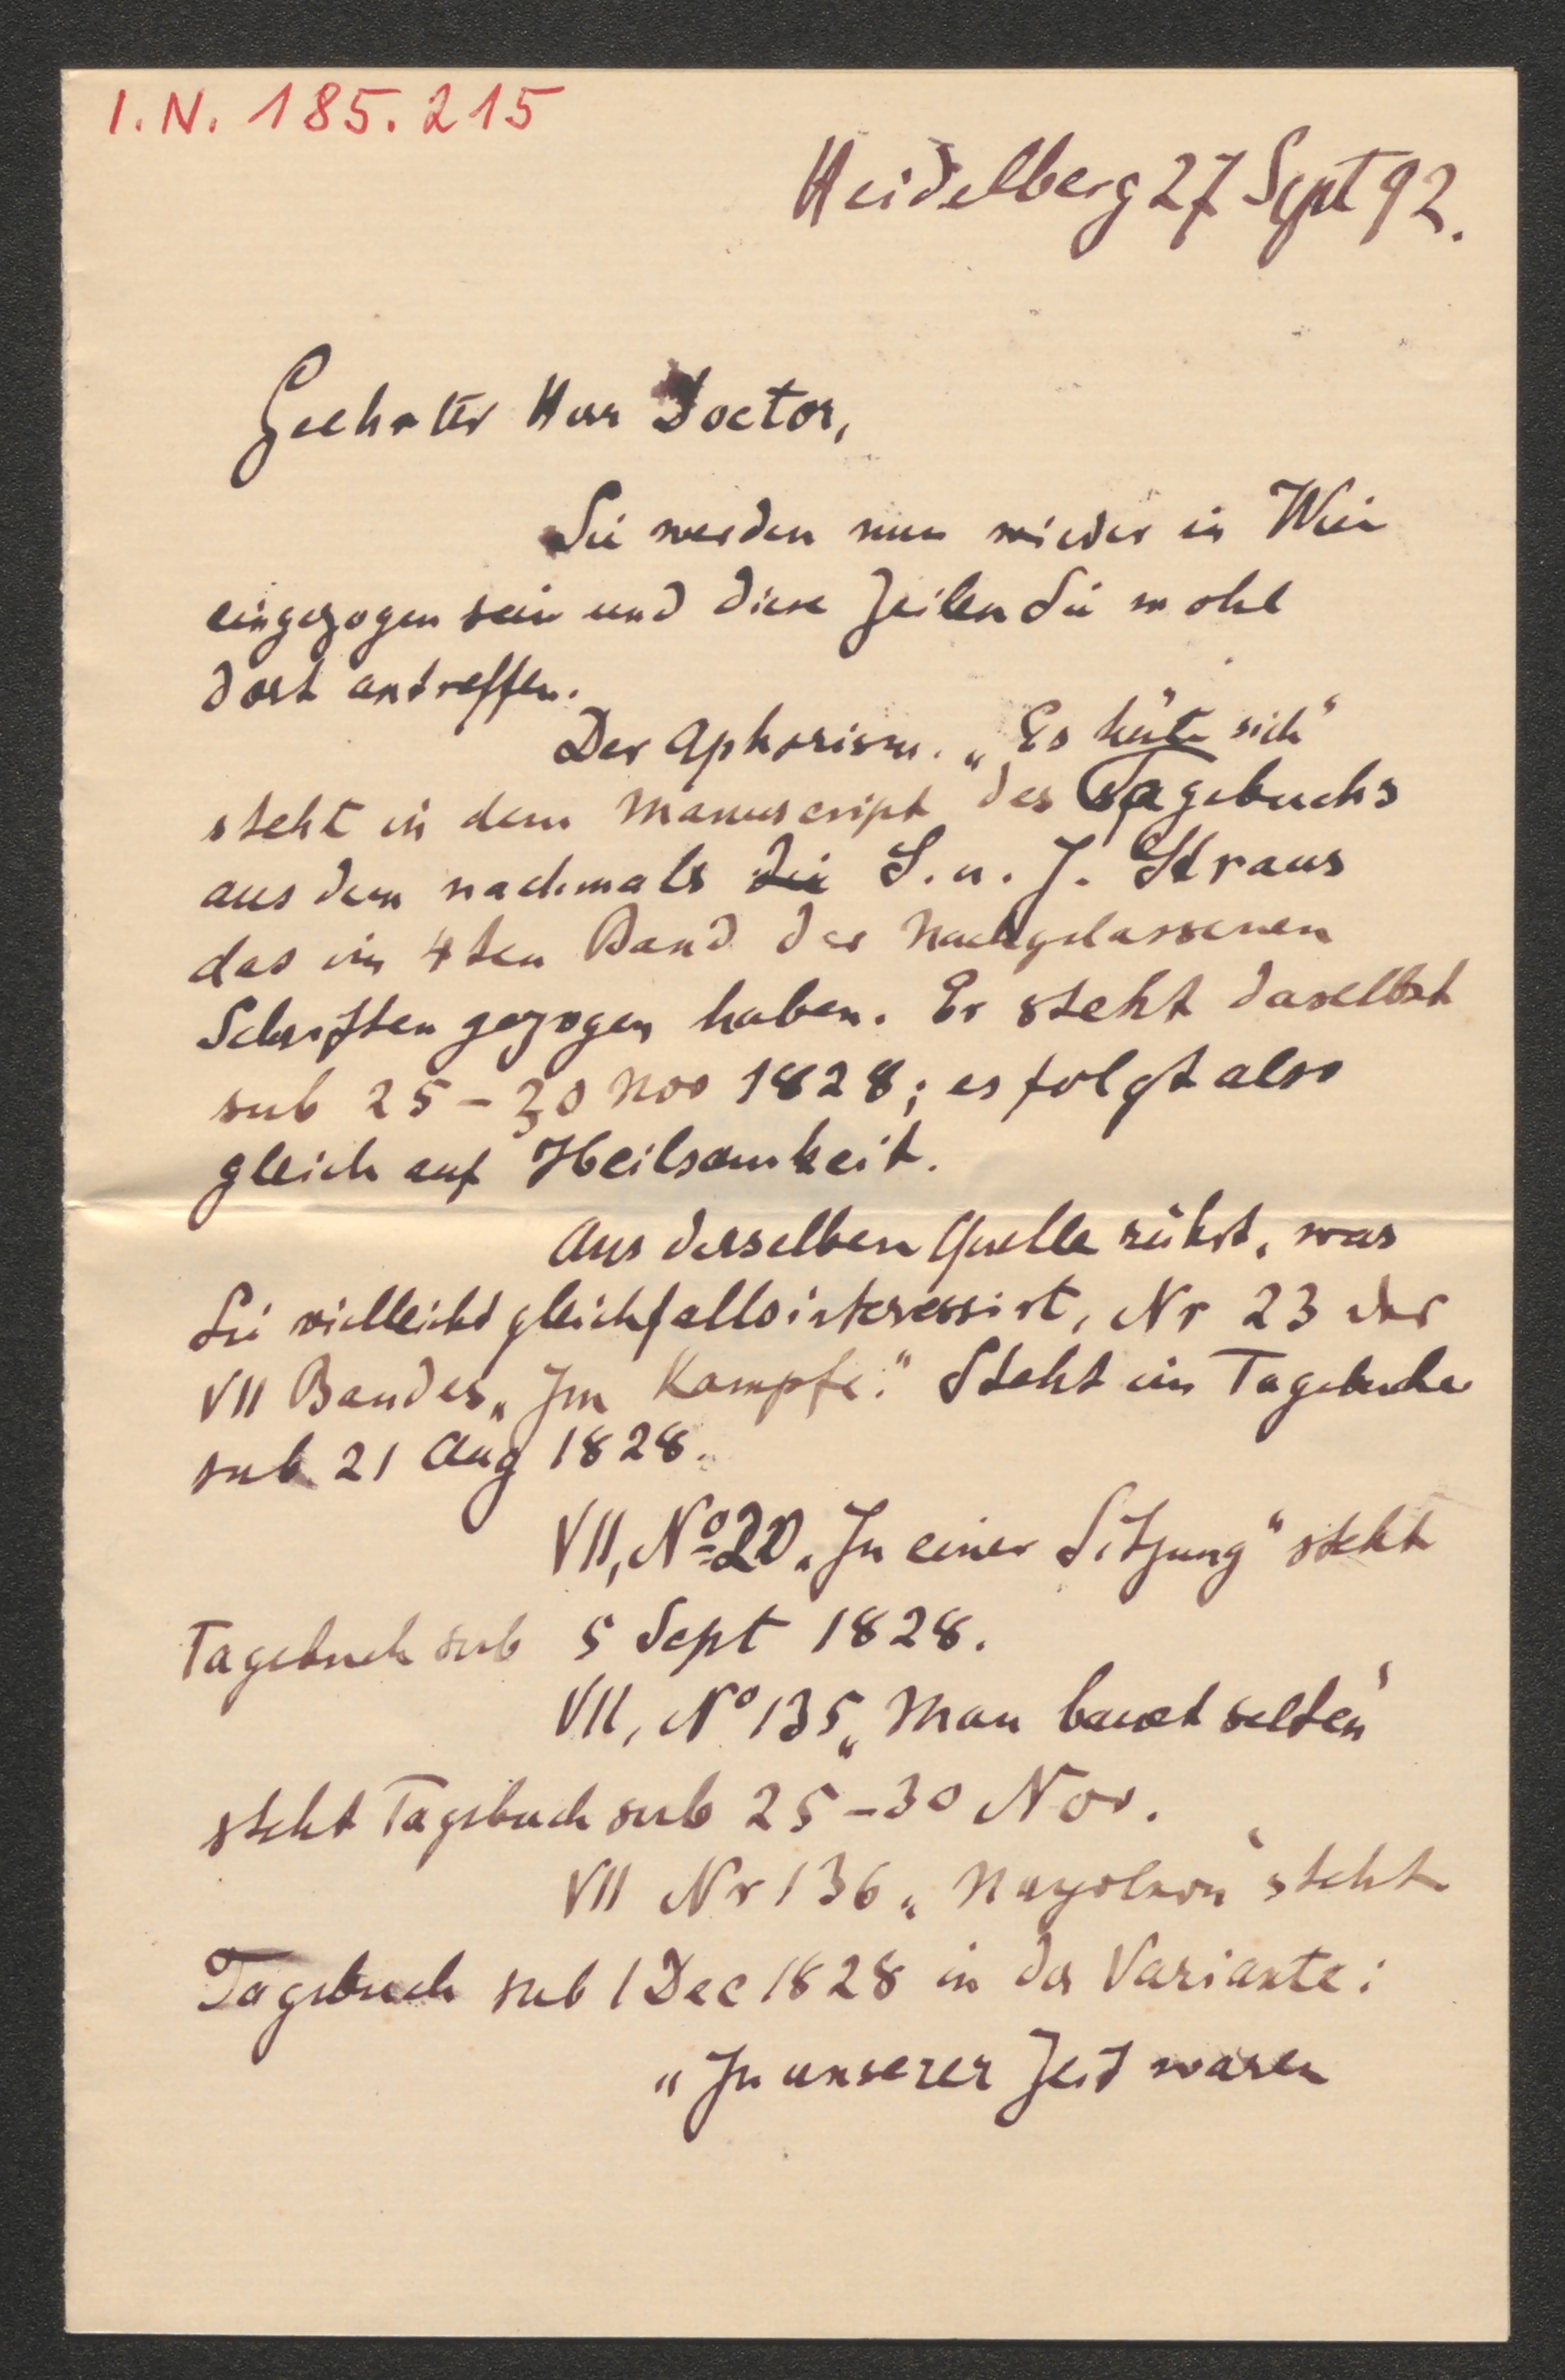 I.N. 185.215
Heidelberg 27 Sept 92.
Geehrter Herr Doctor,
Sie werden nun wieder in Wien
eingezogen sein und diese Zeilen Sie wohl
dort antreffen.
Der Aphorism. „Es hüte sich"
steht in dem Manuscript des Tagebuchs
aus dem nachmals die S. u. J. Straus
das im 4ten Band der Nachgelassenen
Schriften gezogen haben. Er steht daselbst
sub 25–30 Nov 1828; es folgt also
gleich auf Heilsamkeit.
Aus derselben Quelle rührt, was
Sie vielleicht gleichfalls interessirt, Nr 23 des
VII Bandes „Im Kampfe." Steht im Tagebuche
sub 21 Aug 1828.
VII, No 20 „In einer Sitzung" steht
Tagebuch sub 5 Sept 1828.
VII, No 135 „Man bauet selten"
steht Tagebuch sub 25–30 Nov.
VII Nr 136 „Napoleon" steht
Tagebuch sub 1 Dec 1828 in der Variante:
„In unserer Zeit waren